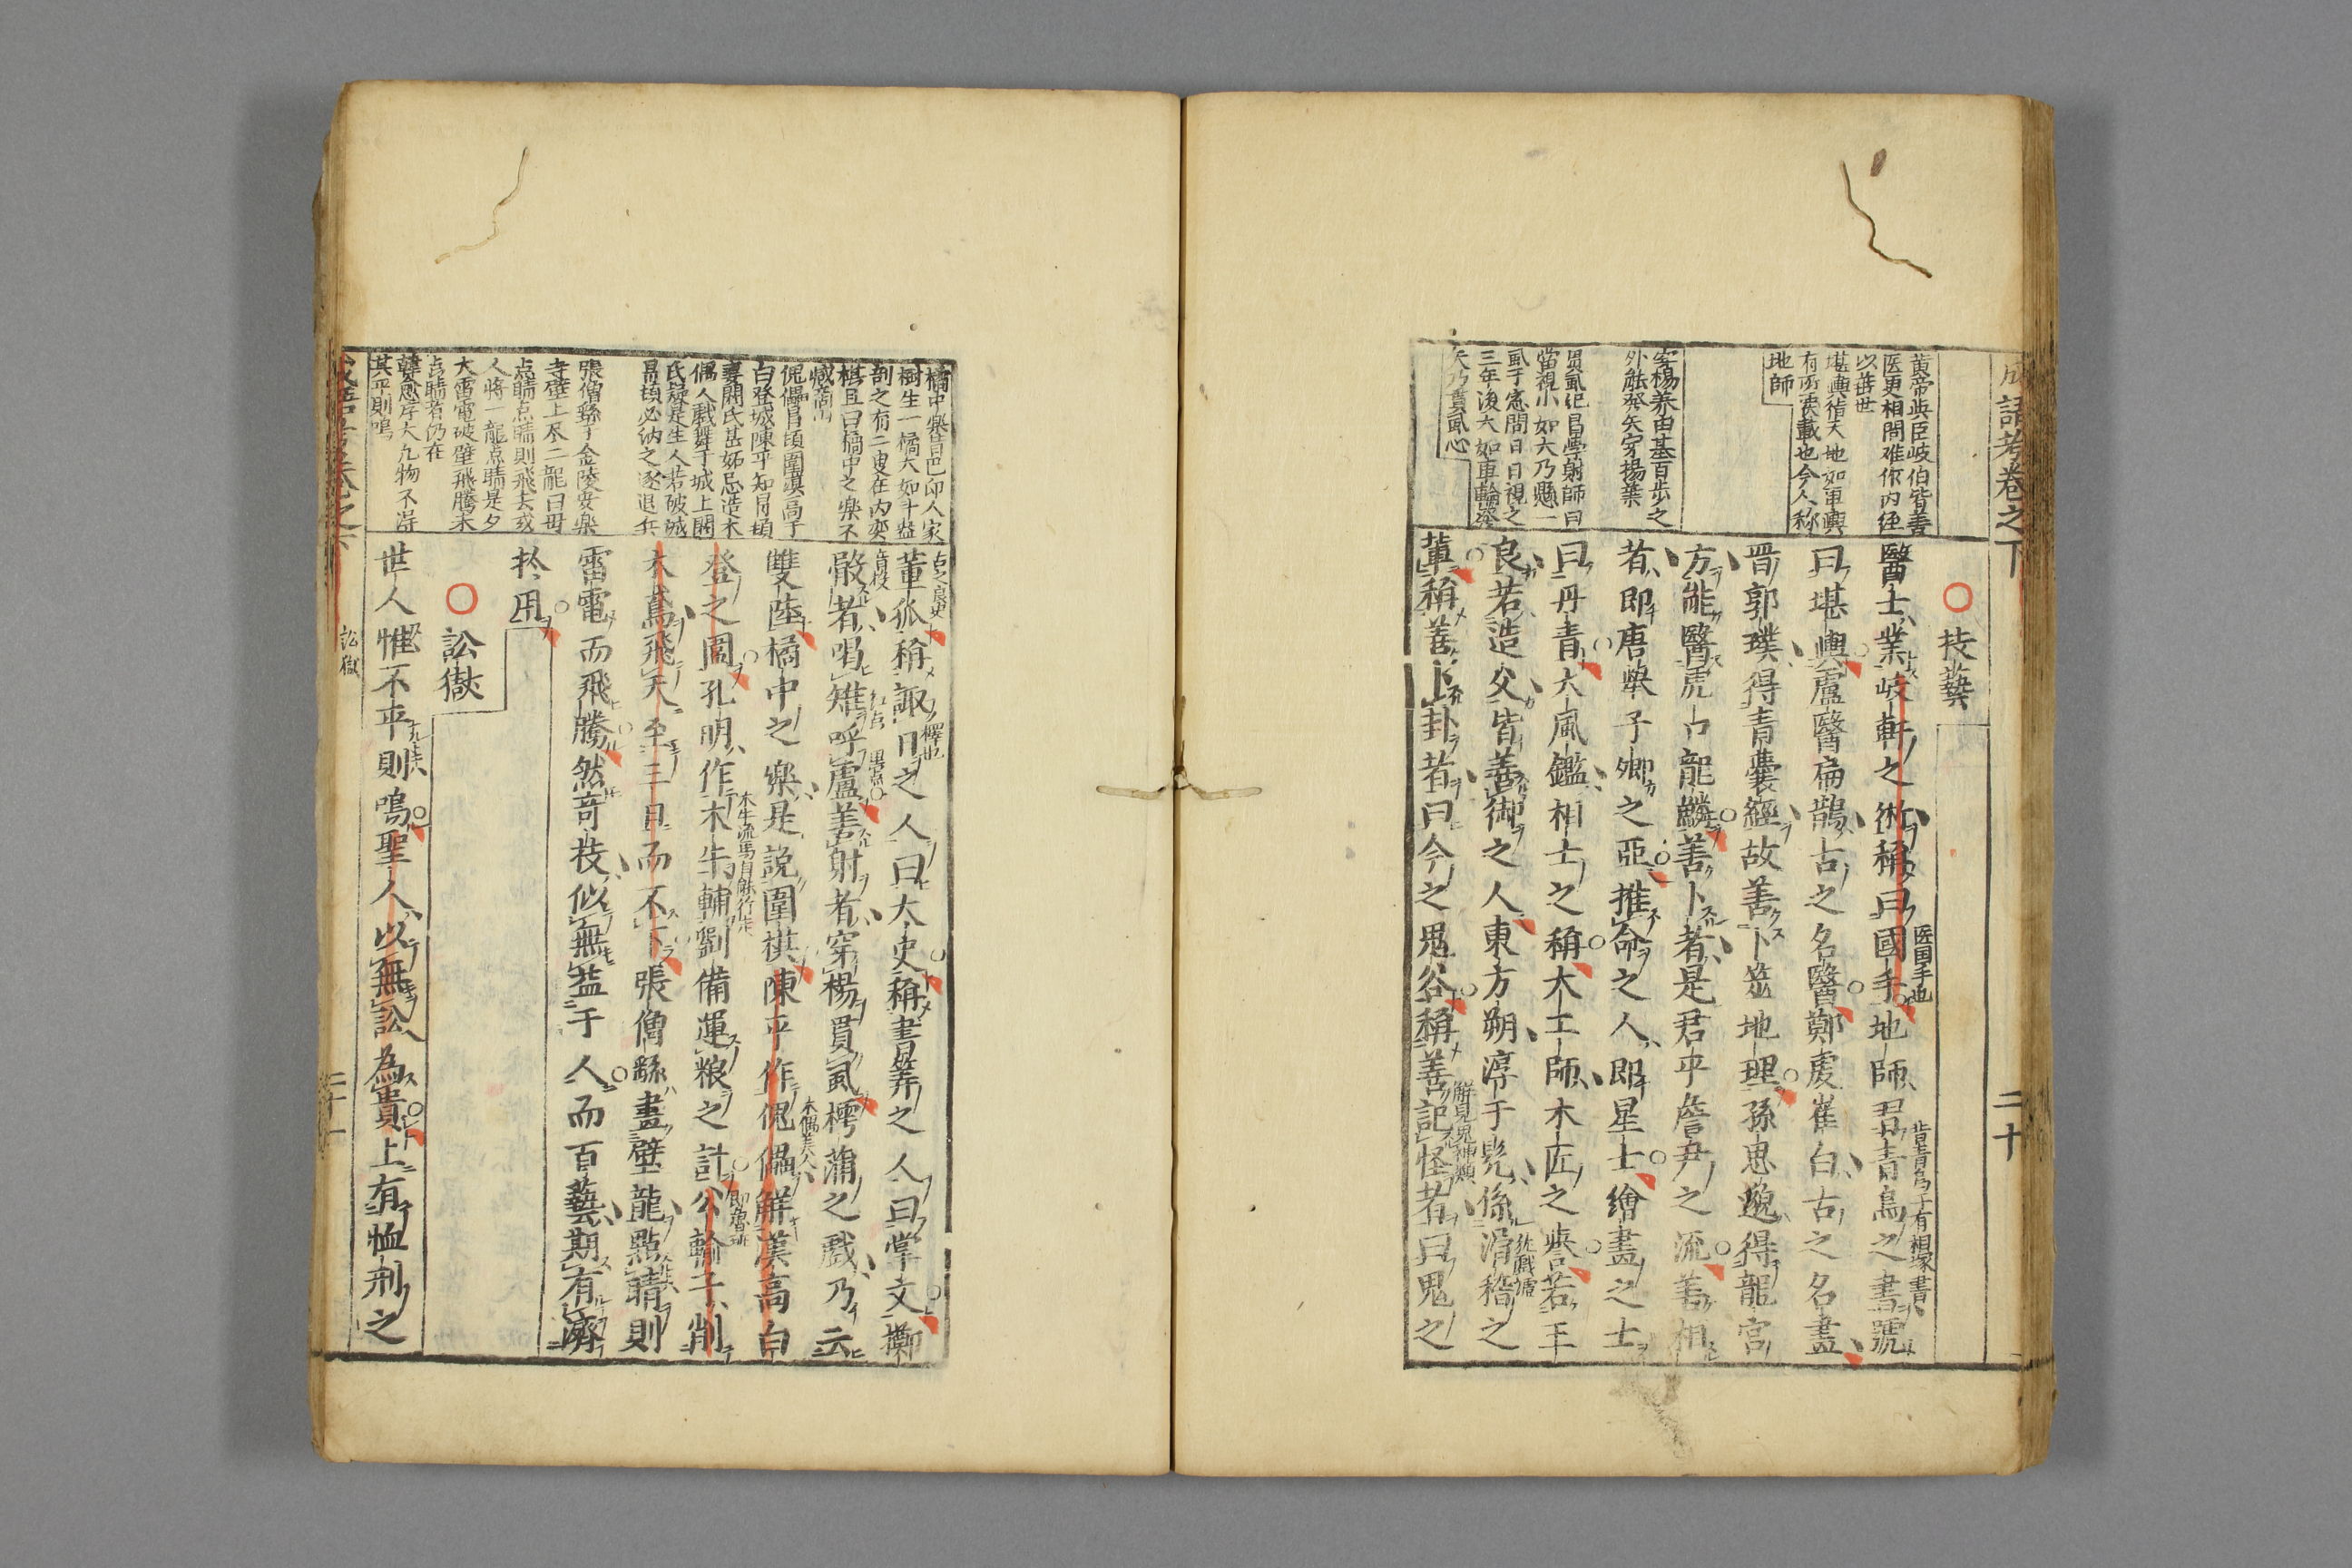 成語考卷之下
二十
黄帝與臣岐伯皆善
医更相問难作内經
以葊世
堪輿指天地如車輿
有所裝載也今人称
地師
客楊养由基百步之
外能發矢穿揚葉
貫虱紀昌學射師曰
當視小如大乃懸一
虱于窓間日日視之
三年後大如車輪發
矢乃貫虱心
○技藝
醫士業岐軒之術稱曰國手地師君青烏之書號
医国手也
肯青烏子有相塚書
曰堪輿盧醫扁鵲古之名醫鄭虔崔白古之名畫
晋郭璞得青囊經故善卜筮地理孫思邈得龍宮
方能醫虎口龍鱗善卜者是君平詹尹之流善相
者即唐舉子卿之亞推命之人即星士繪畫之士
曰丹青大風鑑相士之稱大工師木匠之譽若王
良若造父皆善御之人東方朔淳于髡係滑稽之
從戲謔
輩稱善卜卦者曰今之鬼谷稱善記怪者曰鬼之
解見鬼神類
橘中樂昔巴卭人家
樹生一橘大如斗盆
剖之有二叟在内奕
棋且曰橘中之樂不
减商山
傀儡冒頓圍漢高于
白登城陳平知冒頓
妻閼氏甚妬忌造木
偶人戱舞于城上閼
氏疑是生人若破城
冒頓必纳之逐退兵
張僧繇于金陵安樂
寺壁上画二龍曰毋
点睛点睛則飛去或
人將一龍点睛是夕
大雷電破壁飛騰未
点睛者仍在
韓愈序大凡物不得
其平則鳴
董狐稱諏日之人曰太史稱書筭之人曰掌文擲
古之良史
擇也
骰者喝雉呼盧善射者穿楊貫虱樗蒲之戲乃云
音投
红点
黒点
雙陸橘中之樂是說圍棋陳平作傀儡解漢高白
木偶美人
登之圍孔明作木牛輔劉備運粮之計公輸子削
木牛流馬自能行走
即魯班
木鳶飛天至三日而不下張僧繇畫壁龍點睛則
雷電而飛騰然竒技似無益于人而百藝期有濟
於用
○訟獄
世人惟不平則鳴聖人以無訟為貴上有恤刑之
訟獄
二十一